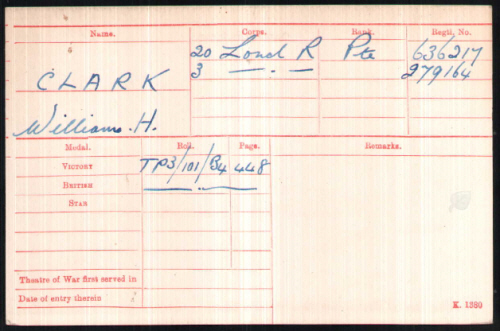 Name. Corps. Rank. Regtl. No.
20 Lond R Pte 636217
3 —„— 279164
CLARK
William. H.
Medal. Roll. Page. Remarks.
VICTORY TP3/101/B4 448
BRITISH —„— —„—
STAR
Theatre of War first served in
Date of entry therein
K. 1380